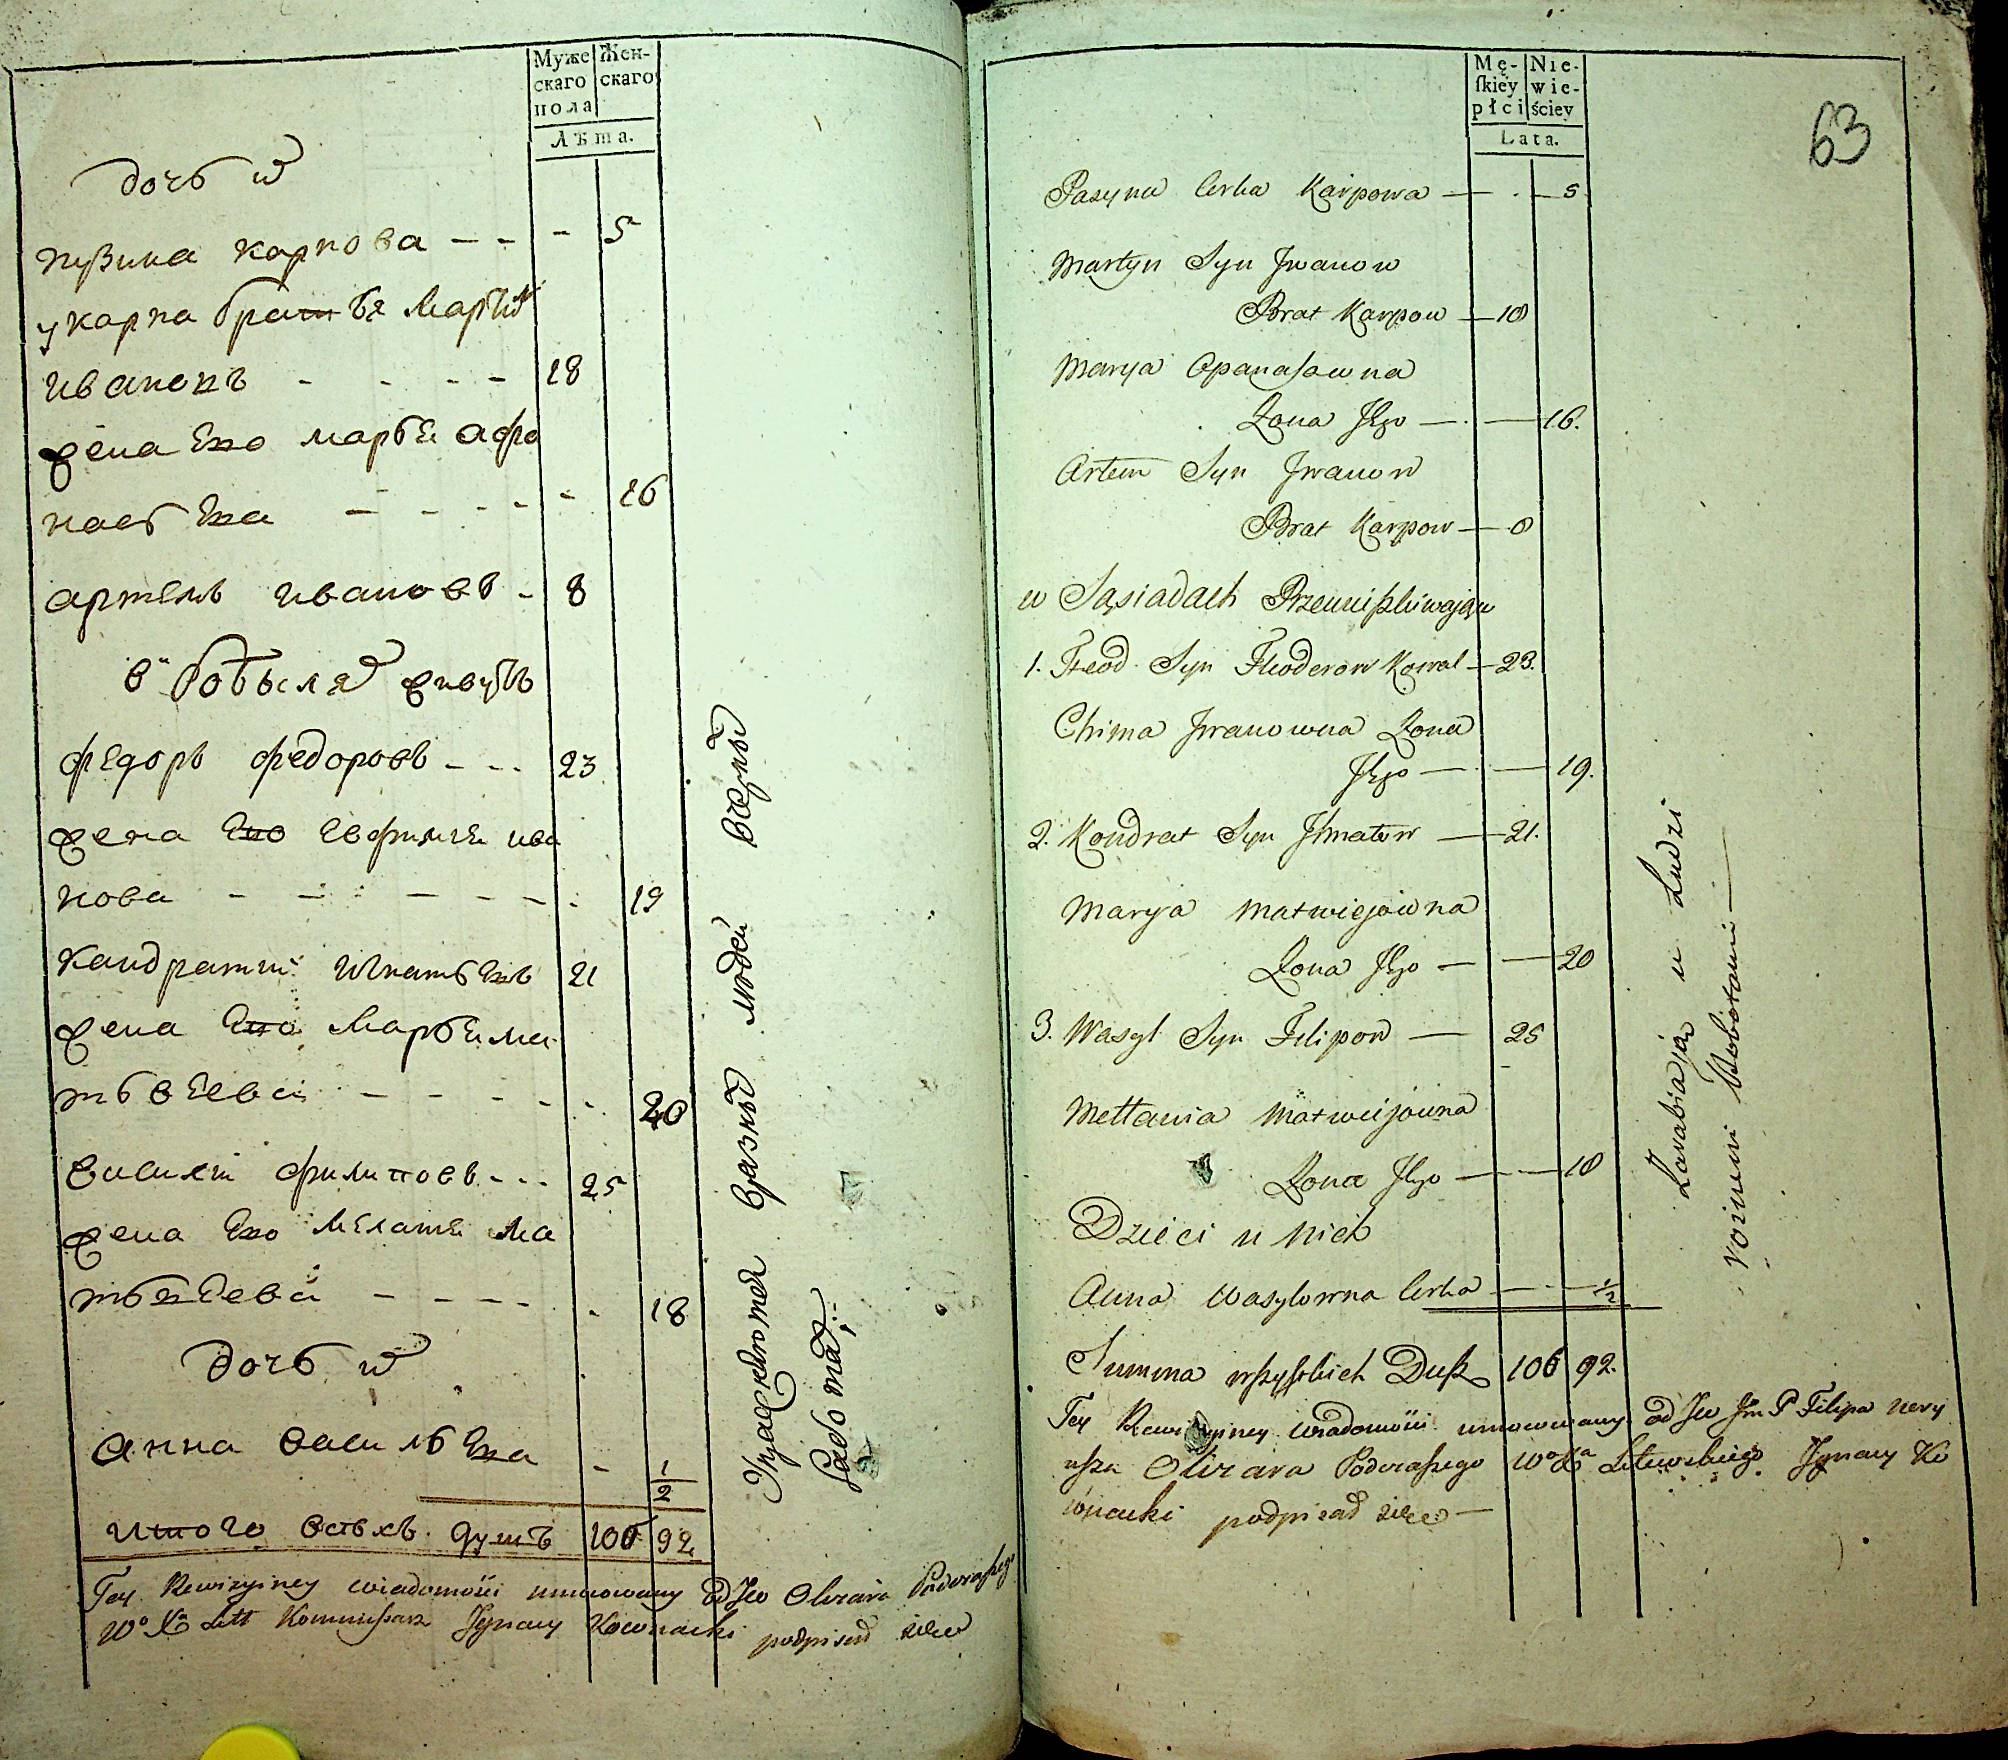 Муже
скаго
пола
Жен-
скаго
Лѣта.
дочь
карпова - - - 5
у карпа братья
ивановъ - - - - 18
жена ево марья афо
насьева - - - - - 16
артемъ ивановъ - 8
в бобылях живутъ
федоръ федоровъ - - - 23
жена ево евфимия ива
нова - - - - - - 19
кандратий игнатьевъ 21
жена ево Марья ма
твеева - - - - - 20
василий филиповъ - - - 25
жена ево мелания ма
твеева - - - - - 18
дочь
анна васильева - 1/2
итого всехъ душъ 106 92
разных людей
работах
Tey Rewizyiney wiadomości umocowany od Jw Olizara Podczaszego
Wo Xa Litt Kommissarz Jgnacy Kownacki podpisał się
Mę-
ſkiéy
płci
Nie-
wie-
ściey
Lata.
63
Pazyna Corka Karpowa — . — 5
Martyn Syn Jwanow
Brat Karpow — 18
Marya Opanasowna
Zona Jego — — 16.
Artem Syn Jwanow
Brat Karpow — 8
w Sąsiadach
1. Fteod. Syn Fteoderow Kowal — 23.
Chima Jwanowna Zona
Jego — — 19.
2. Kondrat Syn Jhnatow — 21.
Marya Matwiejowna
Zona Jego — — 20
3. Wasyl Syn Filipow — 25
Mełtania Matweijowna
Zona Jego — — 18
Dzieci u nich
Anna Wasylowna Corka — — 1/2
Summa wszystkich Dusz 106 92.
Tey Rewizyiney wiadomości umocowany od Jw Jm P Filipa Nery
usza Olizara Podczaszego Wo Xa Litewskiego Jgnacy Ko
wnacki podpisał się —
Zarabiają u Ludzi
roznemi Robotami —